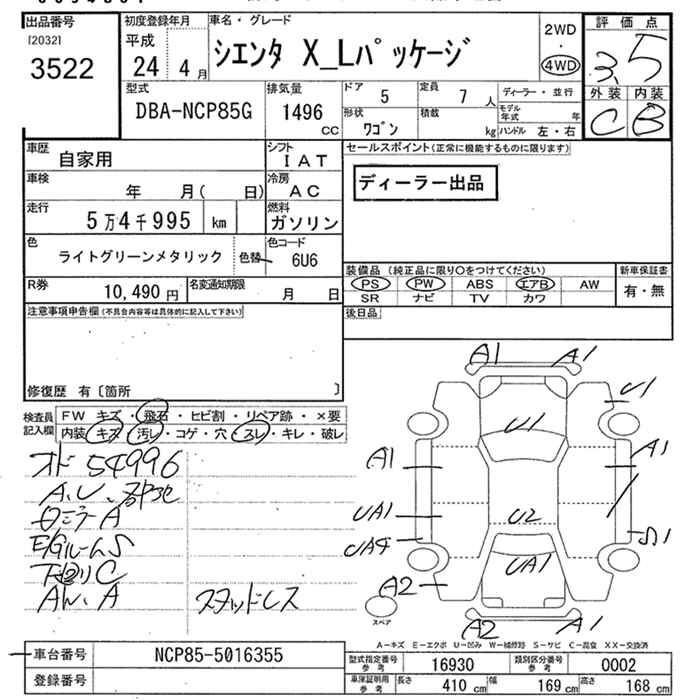 出品番号
[2032]
3522
初度登録年月
平成
24 4 月
車名・グレード
シエンタ X_Lパッケージ
2WD
・
4WD
評価点
3.5
外装 内装
C B
型式
DBA-NCP85G
排気量
1496
cc
ドア
5
定員
7 人
形状
ワゴン
積載
kg
ディーラー・並行
モデル年式
年
ハンドル 左・右
車歴
自家用
シフト
IAT
車検
年 月( 日)
冷房
AC
走行
5万4千995 km
燃料
ガソリン
色
ライトグリーンメタリック
色替
色コード
6U6
R券
10,490 円
名変通知期限
月 日
セールスポイント(正常に機能するものに限ります)
ディーラー出品
装備品 (純正品に限り○をつけてください)
PS PW ABS エアB AW
SR ナビ TV カワ
新車保証書
有・無
後日品
注意事項申告欄(不具合内容等は具体的に記入して下さい)
修復歴 有〔箇所 〕
検査員
記入欄
FW キズ・飛石・ヒビ割・リペア跡・×要
内装 キズ・汚れ・コゲ・穴・スレ・キレ・破レ
オド 54996
A、U、
A
E/Gルーム S
下回り C
A
スタッドレス
A1 A1
U1
U1
A1
A1
UA1
U2
UA4
S1
UA1
A2
A2
A1
スペア
A-キズ E-エクボ U-凹み W-補修跡 S-サビ C-腐食 XX-交換済
車台番号
NCP85-5016355
登録番号
型式指定番号
参考
16930
類別区分番号
参考
0002
車庫証明用
参考
長さ
410 cm
幅
169 cm
高さ
168 cm